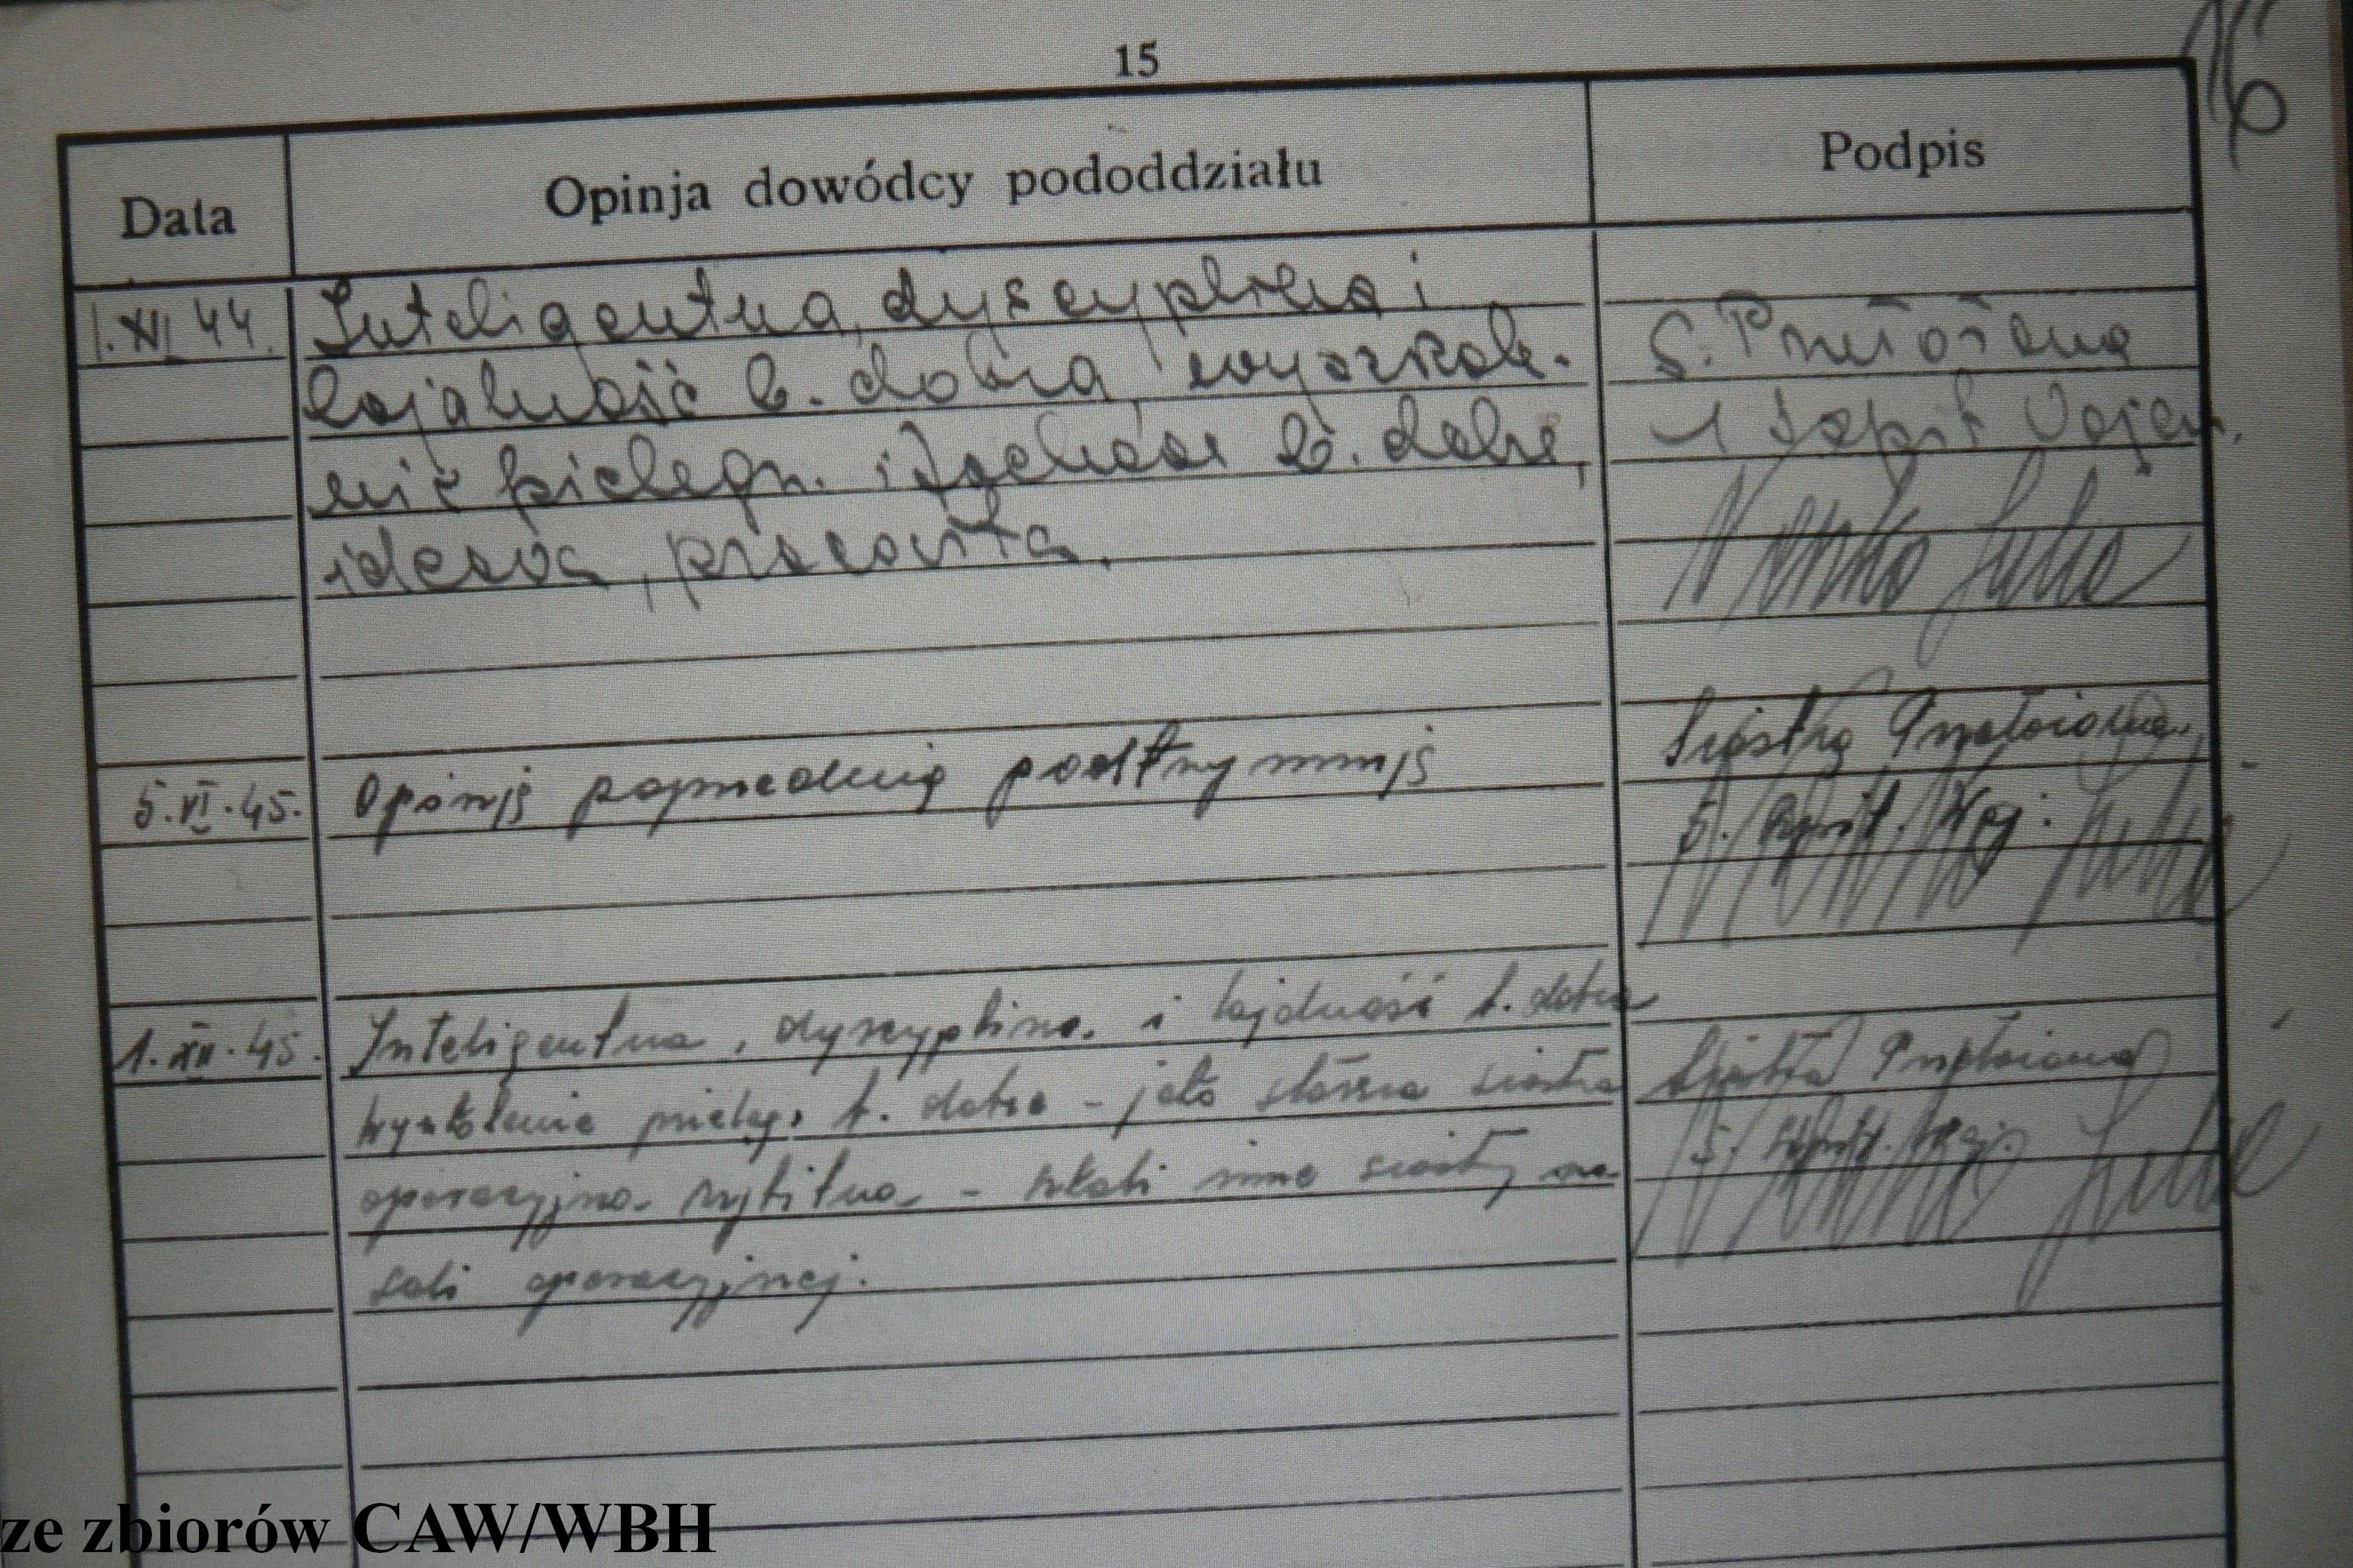 15
16
Data
Opinja dowódcy pododdziału
Podpis
1.XI 44.
Inteligentna, dyscyplina i
lojalność b. dobra, wyszkole-
nie pielęgn. i fachowe b. dobre,
ideowa, pracowita.
S. Przełożona
1 Szpit Wojen.
Julia
5.VI.45.
Opinję poprzednią podtrzymuję
Siostra Przełożona
5. Szpit. Woj.
Julia
1.XII.45.
Inteligentna, dyscyplina i lojalność b. dobra
wyszkolenie pielęg. b. dobre – jako starsza siostra
operacyjna wybitna – szkoli inne siostry na
sali operacyjnej.
Siostra Przełożona
5. Szpit. Woj.
Julia
ze zbiorów CAW/WBH